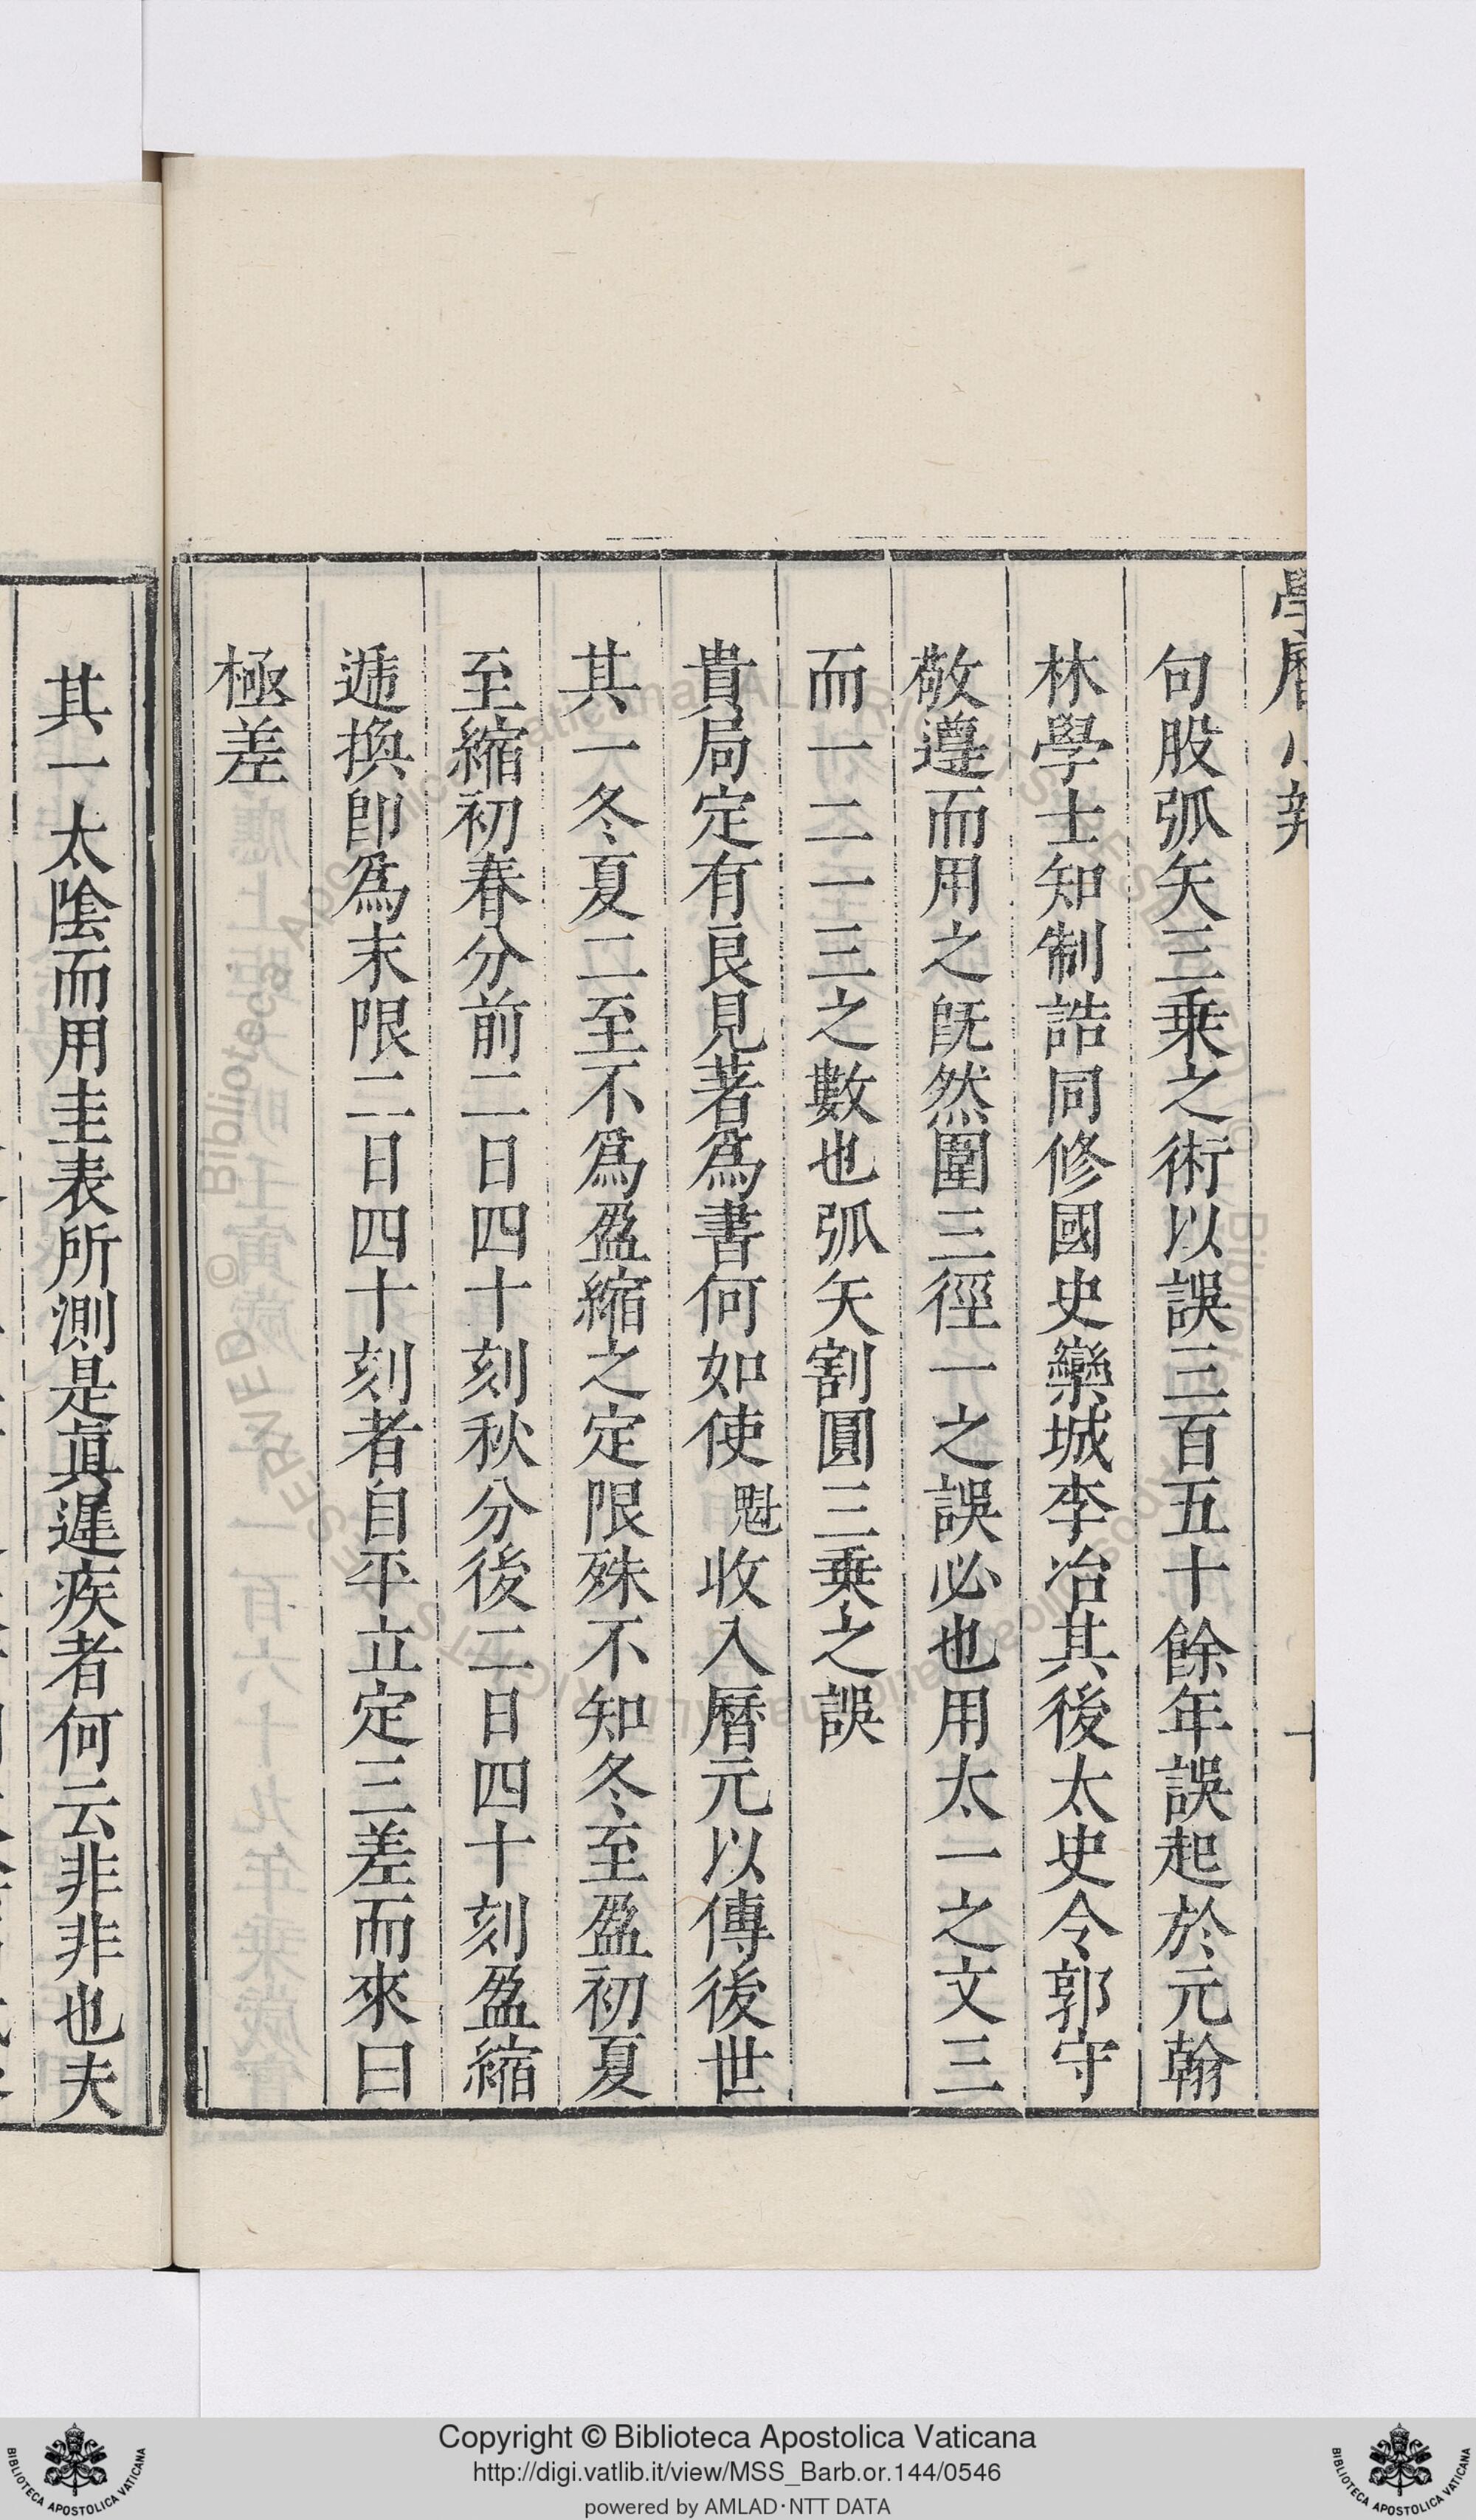 學曆小辯
十
句股弧矢三乗之術以誤三百五十餘年誤起於元翰
林學士知制誥同修國史欒城李冶其後太史令郭守
敬遵而用之旣然圍三徑一之誤必也用太一之文三
而一二一三之數也弧矢割圓三乗之誤
貴局定有良見著爲書何如使魁收入曆元以傳後世
其一冬夏二至不爲盈縮之定限殊不知冬至盈初夏
至縮初春分前二日四十刻秋分後二日四十刻盈縮
遞換卽爲末限二日四十刻者自平立定三差而來曰
極差
其一太陰而用圭表所測是眞遲疾者何云非非也夫
Copyright © Biblioteca Apostolica Vaticana
http://digi.vatlib.it/view/MSS_Barb.or.144/0546
powered by AMLAD·NTT DATA
BIBLIOTECA APOSTOLICA VATICANA
BIBLIOTECA APOSTOLICA VATICANA